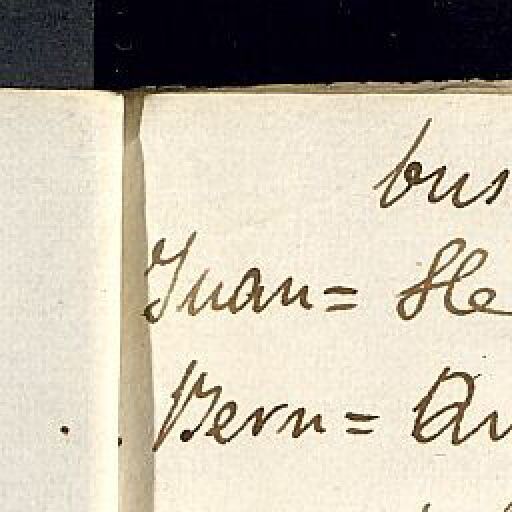 bus
Juan= He
Bern= Qu